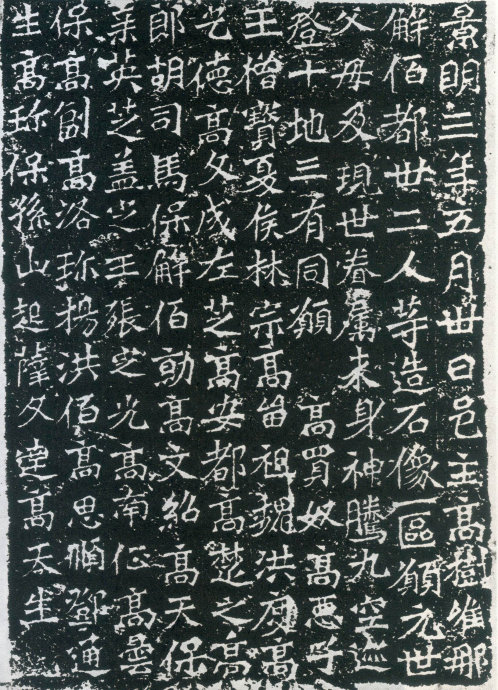 景明三年五月卅日邑主高樹唯那
解佰都卅二人等造石像一區願元世
父母及現世眷屬來身神騰九空迹
登十地三有同願 高買奴高惡子
王僧寶夏侯林宗高留祖魏洪度高
乞德高文成左芝高安都高楚之高
郎胡司馬保解佰勛高文紹高天保
英芝盖之王張芝光高南征高曇
保高副高洛珍楊洪佰高思順鄧通
生高珍保孫山起薩文達高天生